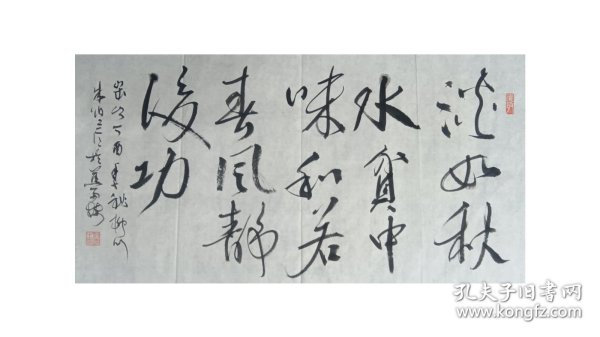 淡如秋
水貧中
味和若
春风静
后功
岁次丁酉春
朱
孔夫子旧书网
www.kongfz.com